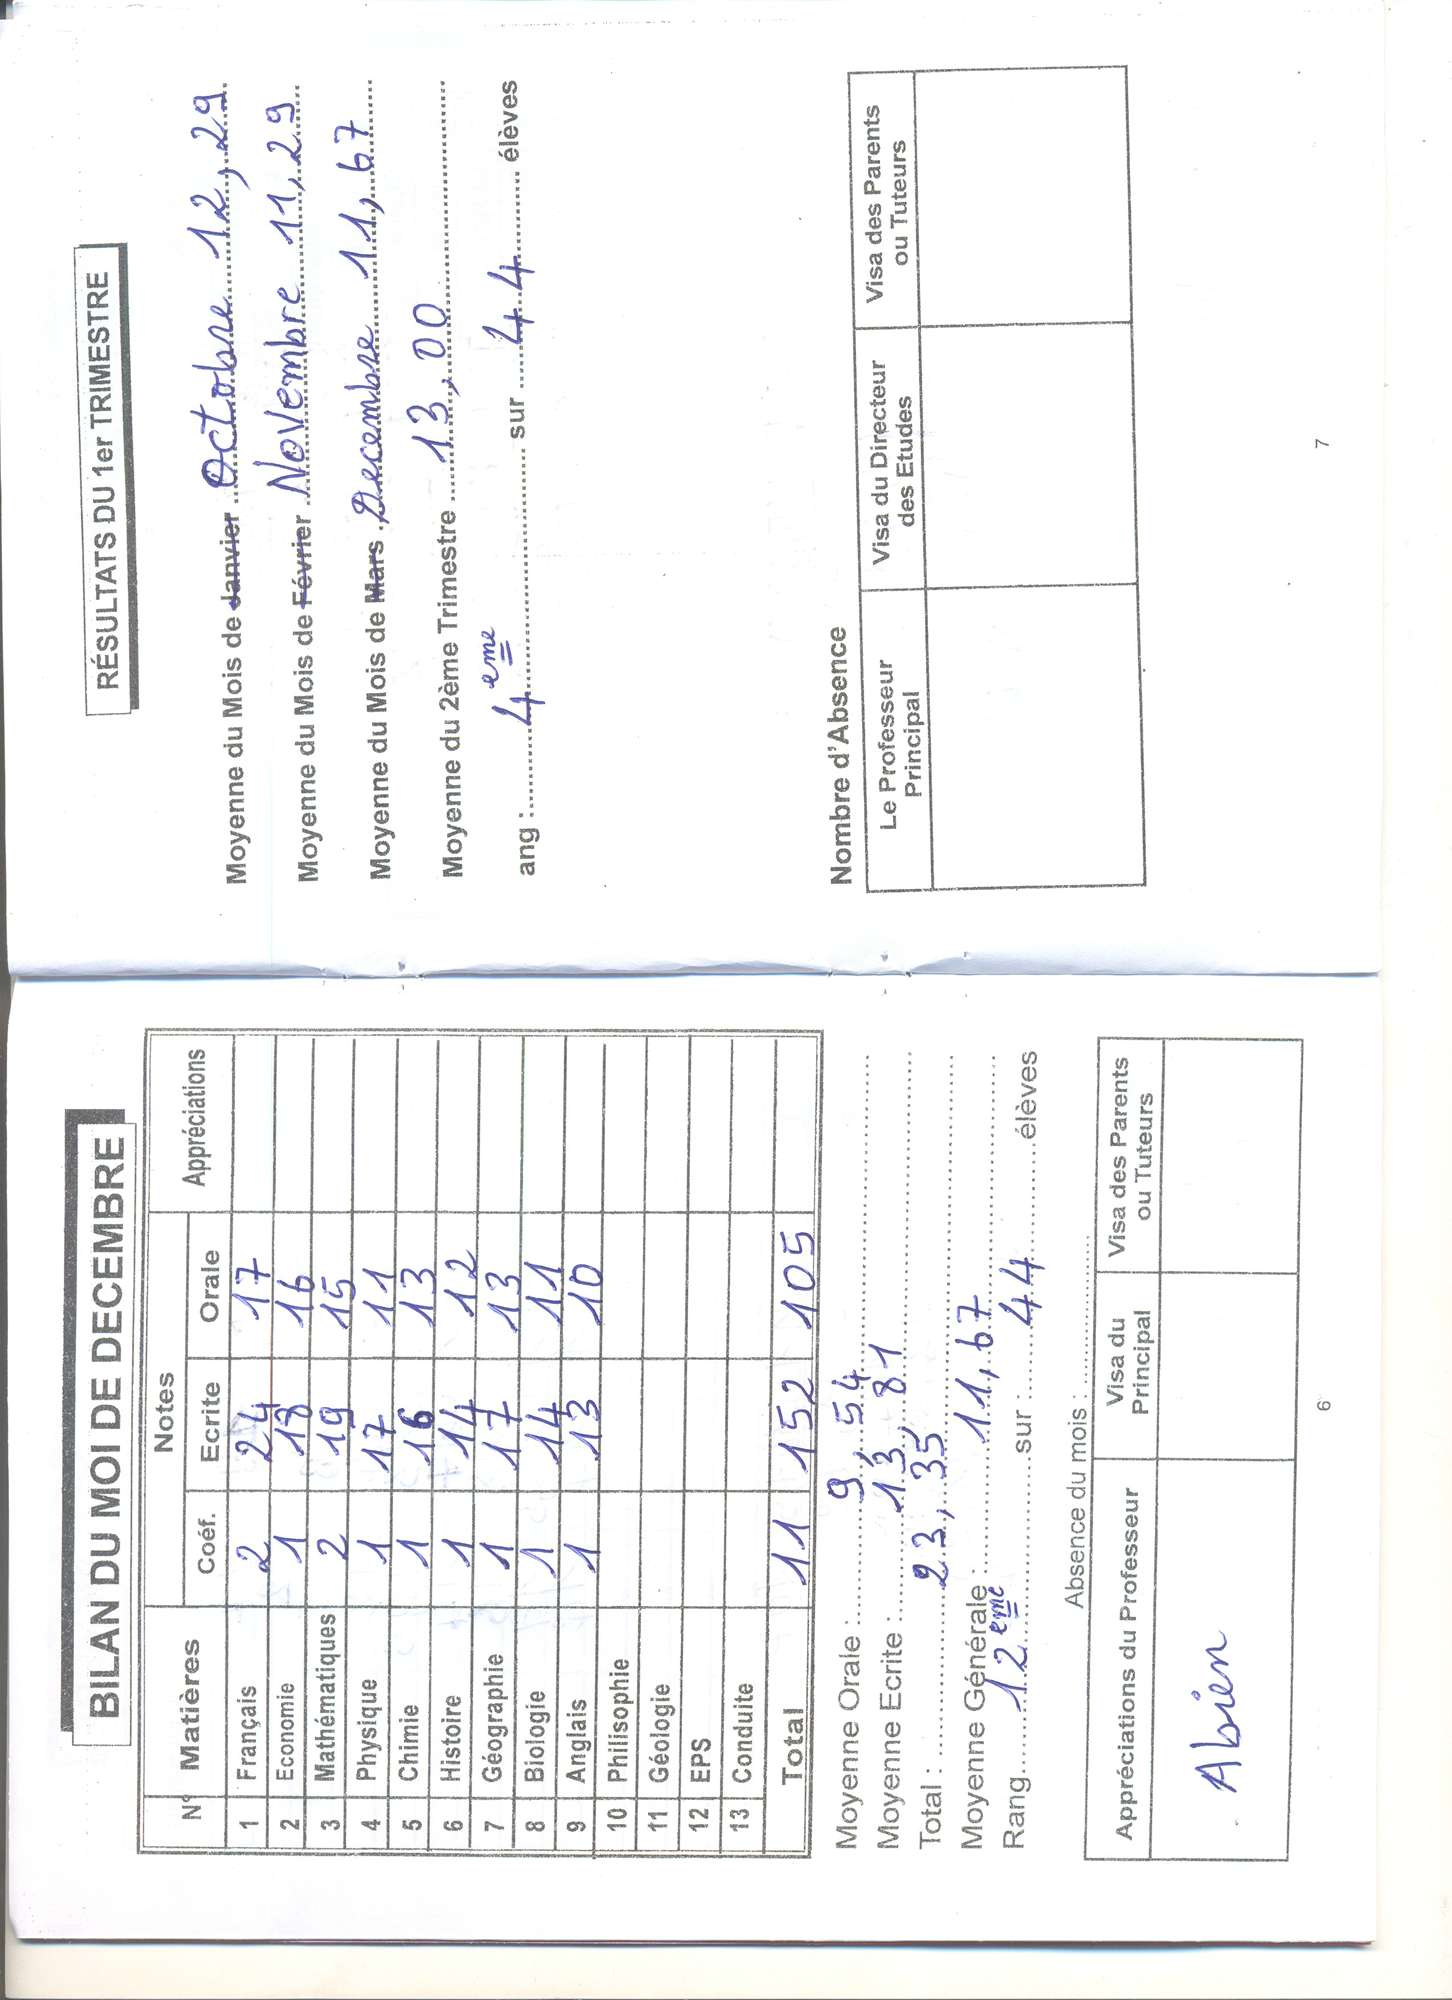 BILAN DU MOI DE DECEMBRE
N° Matières Notes Appréciations
Coéf. Ecrite Orale
1 Français 2 24 17
2 Economie 1 18 16
3 Mathématiques 2 19 15
4 Physique 1 17 11
5 Chimie 1 16 13
6 Histoire 1 14 12
7 Géographie 1 17 13
8 Biologie 1 14 11
9 Anglais 1 13 10
10 Philisophie
11 Géologie
12 EPS
13 Conduite
Total 11 152 105
Moyenne Orale : 9,54
Moyenne Ecrite : 13,81
Total : 23,35
Moyenne Générale : 11,67
Rang 12eme sur : 44 élèves
Absence du mois :
Appréciations du Professeur Visa du Principal Visa des Parents ou Tuteurs
Abien
6
RÉSULTATS DU 1er TRIMESTRE
Moyenne du Mois de Janvier Octobre 12,29
Moyenne du Mois de Février Novembre 11,29
Moyenne du Mois de Mars Decembre 11,67
Moyenne du 2ème Trimestre 13,00
ang : 4eme sur 44 élèves
Nombre d'Absence
Le Professeur Principal Visa du Directeur des Etudes Visa des Parents ou Tuteurs
7